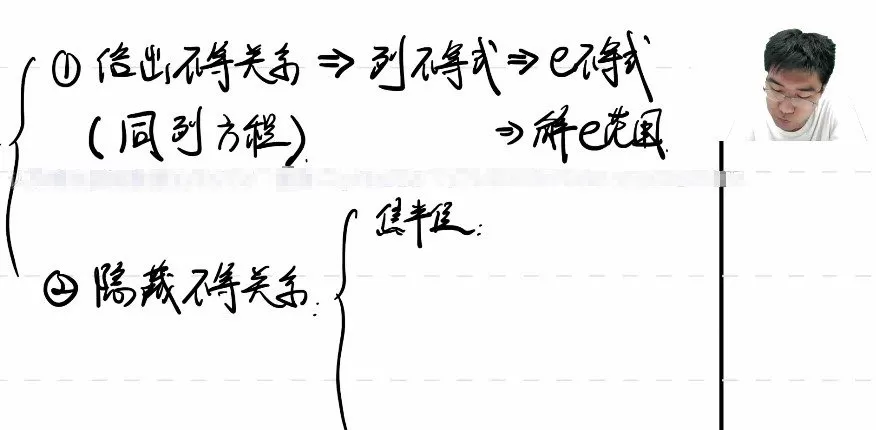 ① 给出不等关系 ⇒ 列不等式 ⇒ e不等式
(同列方程) ⇒ 解e范围.
焦半径:
② 隐藏不等关系: